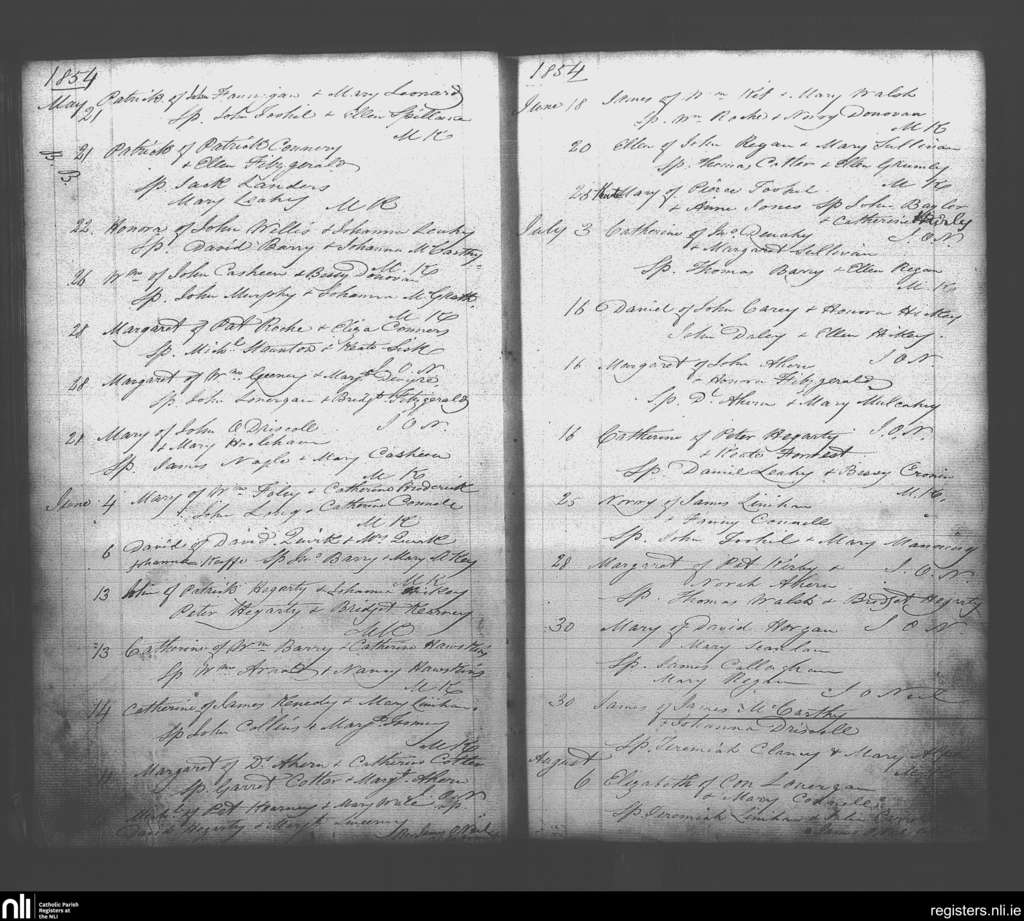 1854
May 21 Patrick of Wm Fannigan & Mary Leonard
Sp. John Foohil & Ellen Spillane
M K
21 Patrick of Patrick Connery
& Ellen Fitzgerald
Sp. Jack Landers
Mary Leahy M K
22 Honora of John Willis & Johanna Leahy
Sp. David Barry & Johanna McCarthy
M. K
26 Wm of John Casheen & Bessy Donovan
Sp. John Murphy & Johanna McGrath
M K
28 Margaret of Pat Roche & Eliza Connors
Sp. Michl Staunton & Kate Sisk
J. O. N
28 Margaret of Wm Geeney & Margt
Sp. John Lonergan & Bridgt Fitzgerald
J O N.
21 Mary of John O Driscoll
& Mary Hoolehaun
Sp. James Nagle & Mary Casheen
M K
June 4 Mary of Wm Foley & Catherine Broderick
& John Long & Catherine Connell
M K
6 David of David Quirk & Mrs Quirk
Johanna Keeffe Sp Jno Barry & Mary McKey
M K
13 John of Patrick Hegarty & Johanna Hickey
Peter Hegarty & Bridget Kearney
M K
13 Catherine of Wm Barry & Catherine Hawskins
Sp Wm Arnold & Nancy Hawskins
M K
14 Catherine of James Kenedy & Mary Linihan
Sp John Collins & Mary Toomey
M K
Margaret of D. Ahern & Catherine Cotter
Sp. Garret Cotter & Margt Ahern
J. O. N
of Pat Kearney & Mary Sp.
David Hegarty & Margt Sweeney
1854
June 18 James of Wm & Mary Walsh
Sp. Wm Roche & Norry Donovan
M K
20 Ellen of John Regan & Mary Sullivan
Sp. Thomas Cotter & Ellen Grumly
M K
28 Mary of Pierce Foohil
& Anne Jones Sp John Baylor
& Catherine
J. O N
July 3 Catherine of Jno. Denahy
& Margaret Sullivan
Sp. Thomas Barry & Ellen Regan
M K
16 Daniel of John Carey & Honora Hickey
John Daley & Ellen Hickey
J O N
16 Margaret of John Ahern
& Honora Fitzgerald
Sp. D. Ahern & Mary Mulcahy
J. O. N.
16 Catherine of Peter Hegarty
& Kate Forrest
Sp. Daniel Leahy & Bessy Cronin
M. K.
25 Norry of James Linihan
& Fanny Connell
Sp. John Foohil & Mary Manning
J. O. N
28 Margaret of Pat Kirby &
Norah Ahern
Sp. Thomas Walsh & Bridget Hegarty
J O N
30 Mary of David Horgan
Mary Scanlan
Sp. James Callaghan
Mary Regan
J O Neil
30 James of James McCarthy
& Johanna Driscoll
Sp. Jeremiah Clancy & Mary
August 6 Elizabeth of Con Lonergan
& Mary Connell
Sp. Jeremiah Linihan & Julia
nli Catholic Parish
Registers at
the NLI
registers.nli.ie